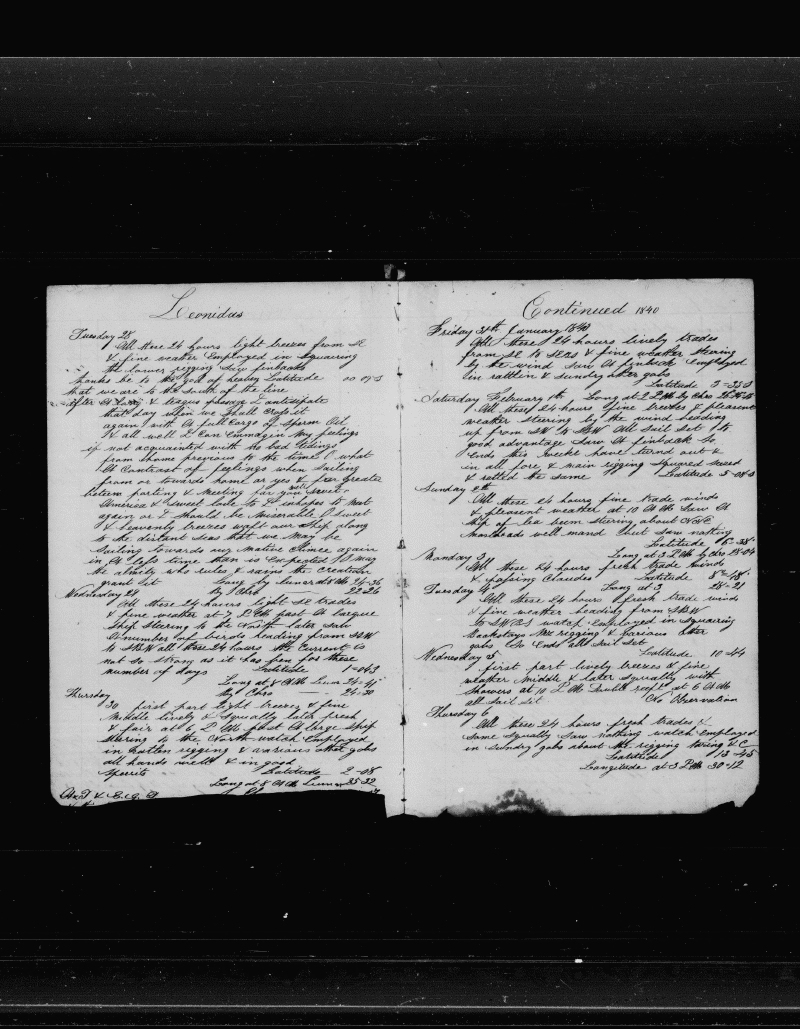 Leonidas
Tuesday 28
All these 24 hours light breezes from SE
& fine weather Employed in squaring
the lower rigging Saw finbacks
thanks be to the god of heaven Latitude 00-09 S
that we are to the South of the line
after A Long & teagus I anticipate
that day when we shall Cross it
again with A full Cargo of Sperm Oil
& all well I Can Immagin my feelings
if not acquainted with no bad tidings
from home previous to the time O what
A Contrast of feelings when Sailing
from or towards home ar yes & far Greater
between parting & meeting for you Sweet
America & Sweet love to I in hopes to meat
again or I should be Miserable O sweet
& heavenly breezes waft our Ship along
to the distant Seas that we may be
Sailing towards my native Climee again
in A Less time than is Expected O may
he who rules & rains the creation
grant Sit Long by Lunar at 8 AM 24-26
Wednesday 29 By Chro 22-26
All these 24 hours light SE trades
& fine weather at 7 PM past A barque
Ship Steering to the North later saw
A number of birds heading from SSW
to SBW all these 24 hours the Current is
not so Strong as it has been for these
number of days Latitude 1-043
Long at 8 AM Lunar 24-41
By Chro 24-30
Thursday
30 first part light breezes & fine
Middle lively & Squally later fresh
& fair at 6 PM past A large Ship
Stering to the North watch Employed
in Ratlen rigging & various other gobs
all hands well & in good
Sperrits Latitude 2-08
Long at 8 AM Lunar 25-32
Continued 1840
Friday 31th January 1840
All these 24 hours lively trades
from SE to SEBS & fine weather stering
by the wind Saw A finback Employed
in rattlin & sundry other gobs
Latitude 3-35 S
Saturday February 1th Long at 2 PM by Chro
All these 24 hours fine breezes & pleasent
weather Steering by the wind heading
up from SW by All Sail Set to
good advantage Saw A finback So
Ends this weeke have turnd out &
in all fore & main rigging Squared
& ratled the same Latitude 5-08 S
Sunday 2th
All these 24 hours fine trade winds
& pleasent weather at 10 AM Saw A
Ship of lea beem Steering about NNE
mastheads well mand but saw nothing
Latitude 6-38
Monday 3 Long at 3 PM by Chro
All these 24 hours fresh trade winds
& passing Clouds Latitude 8-48
Tuesday 4 Long at 3 28-21
All these 24 hours fresh trade winds
& fine weather heading from SBW
to SWBS watch Employed in Squaring
Backstays rigging & various other
gobs So Ends all Sail Set
Latitude 10-44
Wednesday 5
first part lively breezes & fine
weather Middle & later Squally with
Showers at 10 PM Double reeft at 6 AM
all Sail Set No Observation
Thursday 6
All these 24 hours fresh trades &
some Squally Saw nothing watch Employed
in Sundry gobs about the rigging &C
Latitude 13-45
Longitude at 3 PM 30-12